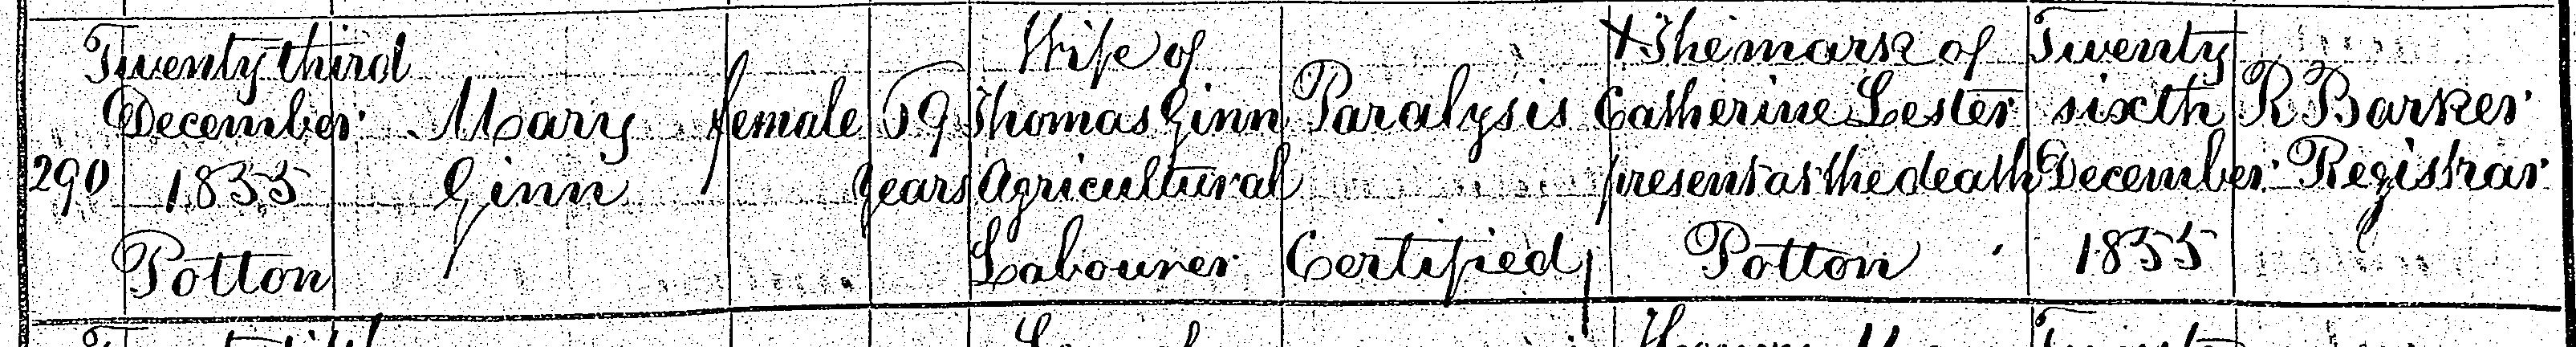 290
Twenty third
December
1855
Potton
Mary
Ginn
female
59
years
Wife of
Thomas Ginn
Agricultural
Labourer
Paralysis
Certified
X The mark of
Catherine Lester
present at the death
Potton
Twenty
sixth
December
1855
R Barker
Registrar